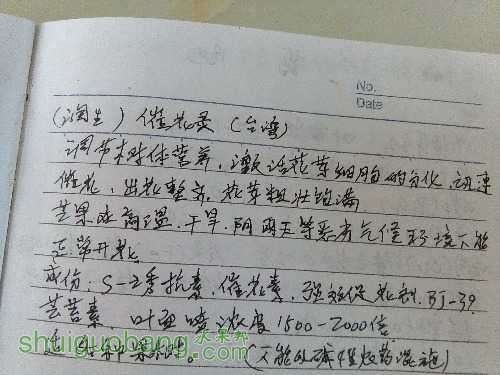 No.
Date
(润生) 催花灵 (台湾)
调节树体营养,激活花芽细胞的分化,迅速
催花,出花整齐,花芽粗壮饱满
芒果在高温.干旱.阴雨天等恶劣气候环境下能
正常开花
成份:S-2秀抗素,催花素,强效促花剂.BJ-39.
芸苔素, 叶面喷浓度1500-2000倍
shuiguobang.com 水果邦
(不能与碱性农药混施)